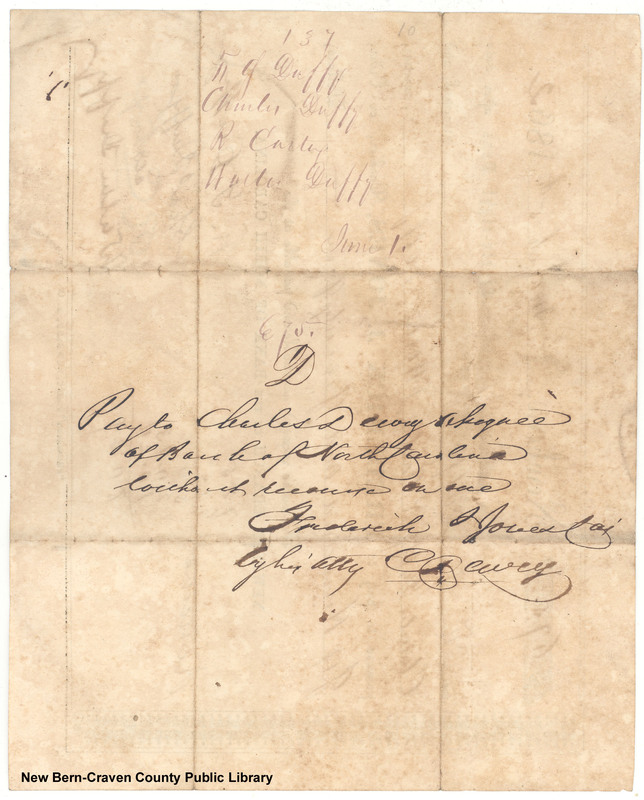 137
10
Duffy
Charles Duffy
R
Duffy
June 1.
675.
D
Pay to Charles Dewey
of Bank of North Carolina
without recourse on me
Frederick J Jones Cas
by his atty C Dewey
New Bern-Craven County Public Library